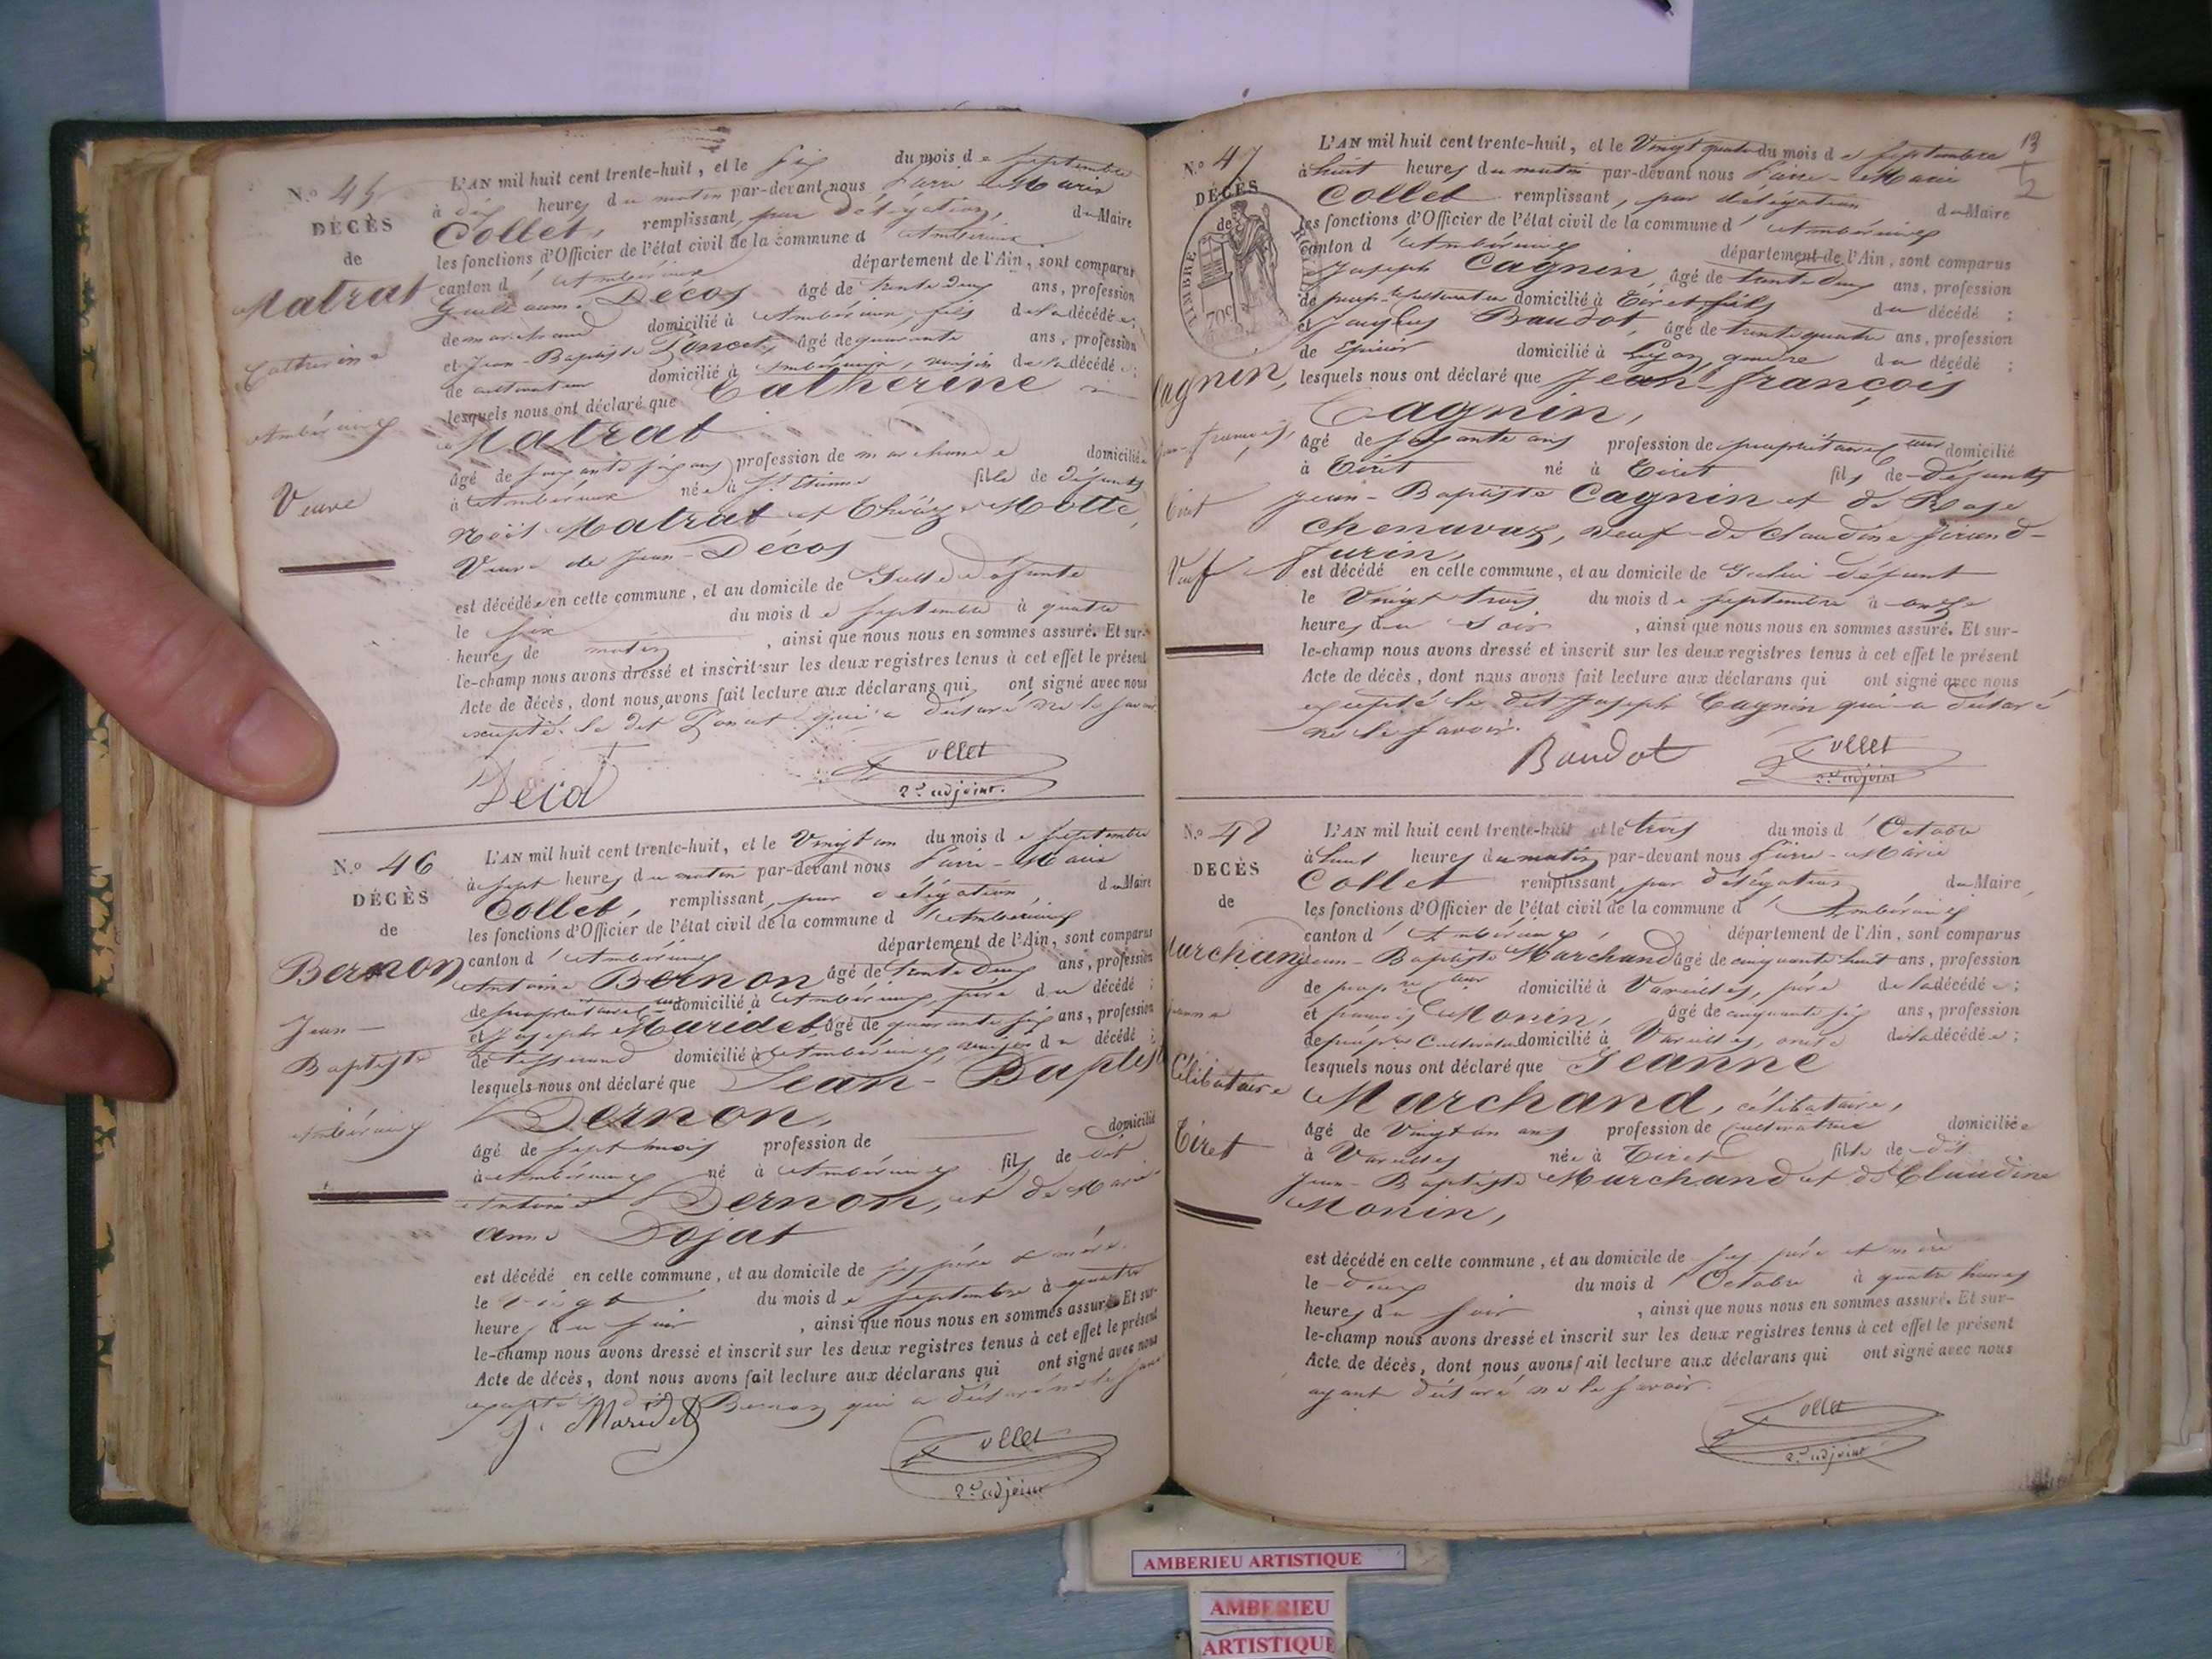 N.o 45
DÉCÈS
de
Matrat
Catherine
Ambérieux
Veuve
L'AN mil huit cent trente-huit, et le six du mois de septembre
à dix heures du matin par-devant nous Pierre-Marie
Collet, remplissant, par délégation, du Maire
les fonctions d'Officier de l'état civil de la commune d'Ambérieux
canton d'Ambérieux département de l'Ain, sont comparus
Guillaume Décos âgé de trente deux ans, profession
de marchand domicilié à Ambérieux, fils de la décédée;
et Jean-Baptiste Poncet, âgé de quarante ans, profession
de cultivateur domicilié à Ambérieux, voisin de la décédée;
lesquels nous ont déclaré que Catherine
Matrat
âgé de soixante six ans profession de marchande domiciliée
à Ambérieux née à St Etienne fille de défunts
Noël Matrat et Thérèze Motte,
Veuve de Jean Décos
est décédée en cette commune, et au domicile de Ladite défunte
le six du mois de septembre à quatre
heures de matin, ainsi que nous nous en sommes assuré. Et sur-
le-champ nous avons dressé et inscrit sur les deux registres tenus à cet effet le présent
Acte de décès, dont nous avons fait lecture aux déclarans qui ont signé avec nous
excepté le dit Poncet qui a déclaré ne le savoir.
Décos
Collet
2e adjoint.
N.o 46
DÉCÈS
de
Bernon
Jean-
Baptiste
Ambérieux
L'AN mil huit cent trente-huit, et le Vingt un du mois de septembre
à sept heures du matin par-devant nous Pierre-Marie
Collet, remplissant, par délégation du Maire
les fonctions d'Officier de l'état civil de la commune d'Ambérieux
canton d'Ambérieux département de l'Ain, sont comparus
Antoine Bernon âgé de trente deux ans, profession
de propriétaire cteur domicilié à Ambérieux, père du décédé;
et Joseph Maridet, âgé de quarante six ans, profession
de tisserand domicilié à Ambérieux, voisin du décédé;
lesquels nous ont déclaré que Jean-Baptiste
Bernon,
âgé de sept mois profession de domicilié
à Ambérieux né à Ambérieux fils de dit
Antoine Bernon, et de Marie
Anne Dojat
est décédé en cette commune, et au domicile de ses père et mère.
le vingt du mois de septembre à quatre
heures du soir, ainsi que nous nous en sommes assuré. Et sur-
le-champ nous avons dressé et inscrit sur les deux registres tenus à cet effet le présent
Acte de décès, dont nous avons fait lecture aux déclarans qui ont signé avec nous
excepté le dit Bernon qui a déclaré ne le savoir
J. Maridet
Collet
2e adjoint
13
N.o 47
DÉCÈS
de
TIMBRE
70c
Cagnin,
Jean-françois,
Tiret
Veuf
L'AN mil huit cent trente-huit, et le Vingt quatre du mois de septembre
à huit heures du matin par-devant nous Pierre-Marie
Collet remplissant, par délégation du Maire
les fonctions d'Officier de l'état civil de la commune d'Ambérieux
canton d'Ambérieux département de l'Ain, sont comparus
Joseph Cagnin, âgé de trente deux ans, profession
de propre cultivateur domicilié à Tiret, fils du décédé;
et Jacques Baudot, âgé de trente quatre ans, profession
de Epicier domicilié à Lyon, gendre du décédé;
lesquels nous ont déclaré que Jean-françois
Cagnin,
âgé de soixante ans profession de propriétaire cteur domicilié
à Tiret né à Tiret fils de Défunts
Jean-Baptiste Cagnin et de Rose
Chenavaz, veuf de Claudine
est décédé en cette commune, et au domicile de Celui défunt
le Vingt trois du mois de septembre à onze
heures du soir, ainsi que nous nous en sommes assuré. Et sur-
le-champ nous avons dressé et inscrit sur les deux registres tenus à cet effet le présent
Acte de décès, dont nous avons fait lecture aux déclarans qui ont signé avec nous
excepté le dit Joseph Cagnin qui a déclaré
ne le savoir.
Baudot
Collet
2e adjoint
N.o 48
DECÈS
de
Marchand
Jeanne
Célibataire
Tiret
L'AN mil huit cent trente-huit et le trois du mois d'Octobre
à huit heures du matin par-devant nous Pierre-Marie
Collet remplissant, par délégation du Maire,
les fonctions d'Officier de l'état civil de la commune d'Ambérieux
canton d'Ambérieux, département de l'Ain, sont comparus
Jean-Baptiste Marchand âgé de cinquante huit ans, profession
de propre cteur domicilié à Vareilles, père de la décédée;
et françois Monin, âgé de cinquante six ans, profession
de propre Cultivateur domicilié à Vareilles, oncle de la décédée;
lesquels nous ont déclaré que Jeanne
Marchand, célibataire,
âgé de Vingt un ans profession de cultivatrice domiciliée
à Vareilles née à Tiret fille de dit
Jean-Baptiste Marchand et de Claudine
Monin,
est décédé en cette commune, et au domicile de ses père et mère
le deux du mois d'Octobre à quatre heures
heures du soir, ainsi que nous nous en sommes assuré. Et sur-
le-champ nous avons dressé et inscrit sur les deux registres tenus à cet effet le présent
Acte de décès, dont nous avons fait lecture aux déclarans qui ont signé avec nous
ayant déclaré ne le savoir.
Collet
2e adjoint
AMBERIEU ARTISTIQUE
AMBERIEU
ARTISTIQUE